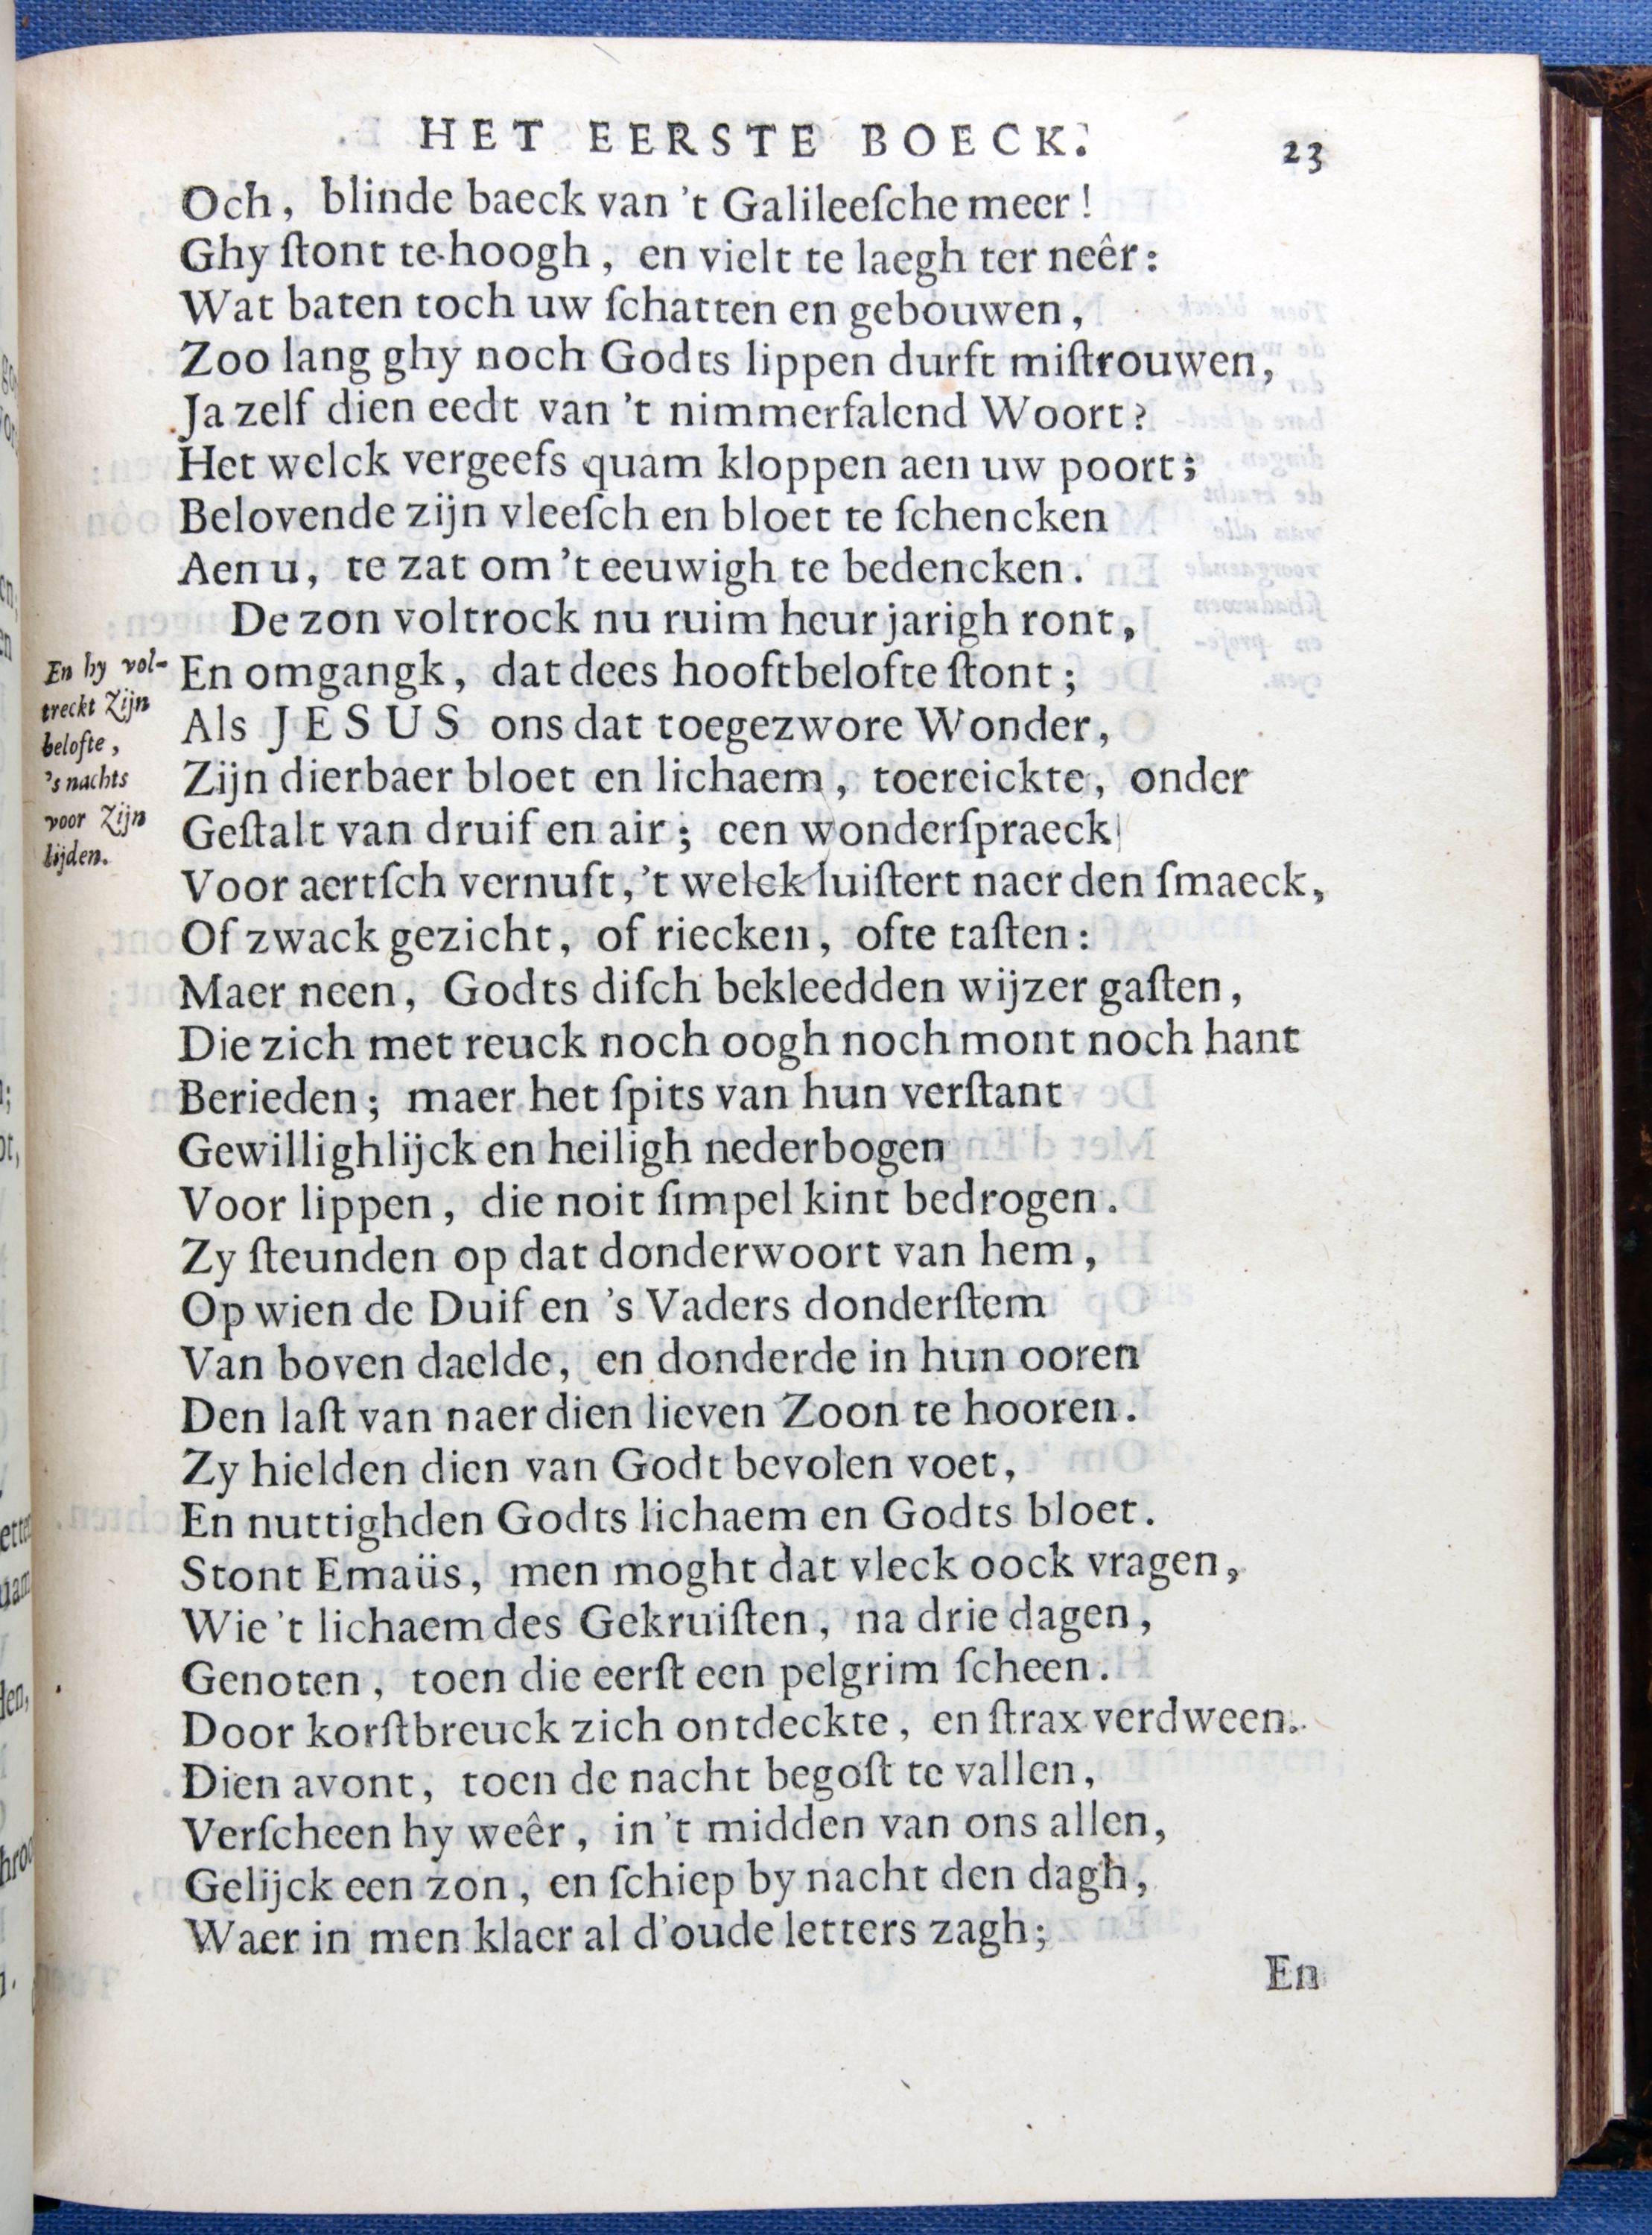 HET EERSTE BOECK. 23
Och, blinde baeck van 't Galileeſche meer!
Ghy ſtont te hoogh, en vielt te laegh ter neêr:
Wat baten toch uw ſchatten en gebouwen,
Zoo lang ghy noch Godts lippen durft miſtrouwen,
Ja zelf dien eedt van 't nimmerfalend Woort?
Het welck vergeefs quam kloppen aen uw poort;
Belovende zijn vleeſch en bloet te ſchencken
Aen u, te zat om 't eeuwigh te bedencken.
De zon voltrock nu ruim heur jarigh ront,
En omgangk, dat dees hooftbelofte ſtont;
Als JESUS ons dat toegezwore Wonder,
Zijn dierbaer bloet en lichaem, toereickte, onder
Geſtalt van druif en air; een wonderſpraeck
Voor aertſch vernuft, 't welck luiſtert naer den ſmaeck,
Of zwack gezicht, of riecken, ofte taſten:
Maer neen, Godts diſch bekleedden wijzer gaſten,
Die zich met reuck noch oogh noch mont noch hant
Berieden; maer het ſpits van hun verſtant
Gewillighlijck en heiligh nederbogen
Voor lippen, die noit ſimpel kint bedrogen.
Zy ſteunden op dat donderwoort van hem,
Op wien de Duif en 's Vaders donderſtem
Van boven daelde, en donderde in hun ooren
Den laſt van naer dien lieven Zoon te hooren.
Zy hielden dien van Godt bevolen voet,
En nuttighden Godts lichaem en Godts bloet.
Stont Emaüs, men moght dat vleck oock vragen,
Wie 't lichaem des Gekruiſten, na drie dagen,
Genoten, toen die eerſt een pelgrim ſcheen.
Door korſtbreuck zich ontdeckte, en ſtrax verdween.
Dien avont, toen de nacht begoſt te vallen,
Verſcheen hy weêr, in 't midden van ons allen,
Gelijck een zon, en ſchiep by nacht den dagh,
Waer in men klaer al d'oude letters zagh;
En
En hy vol-
treckt Zijn
belofte,
's nachts
voor Zijn
lijden.